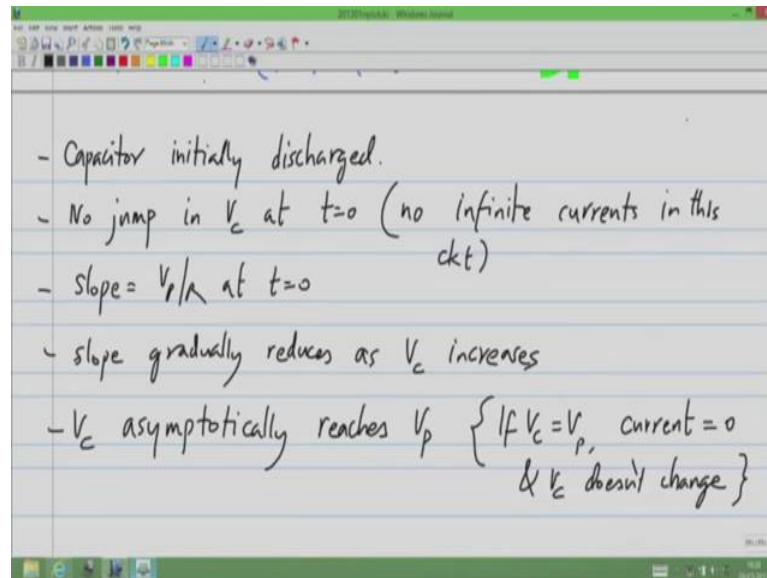 - Capacitor initially discharged.
- No jump in Vc at t=0 (no infinite currents in this
ckt)
- slope = Vp/R at t=0
- slope gradually reduces as Vc increases
- Vc asymptotically reaches Vp { If Vc = Vp, current = 0
& Vc doesn't change }